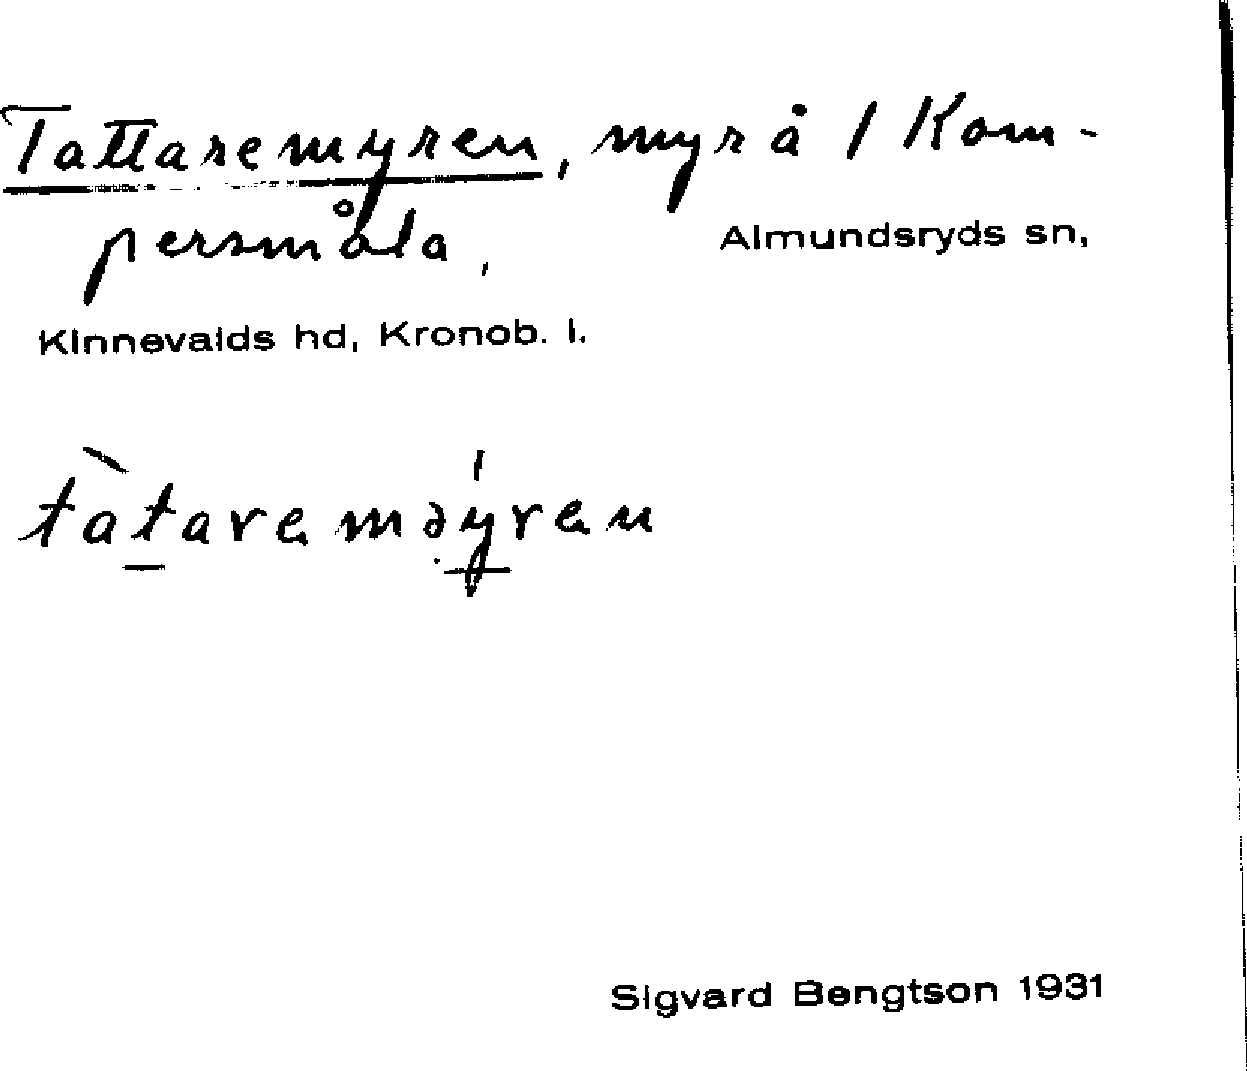 Tattaremyren, myr å 1 Kom-
persmåla, Almundsryds sn,
Kinnevalds hd, Kronob. l.
tàtareməýren
Sigvard Bengtson 1931